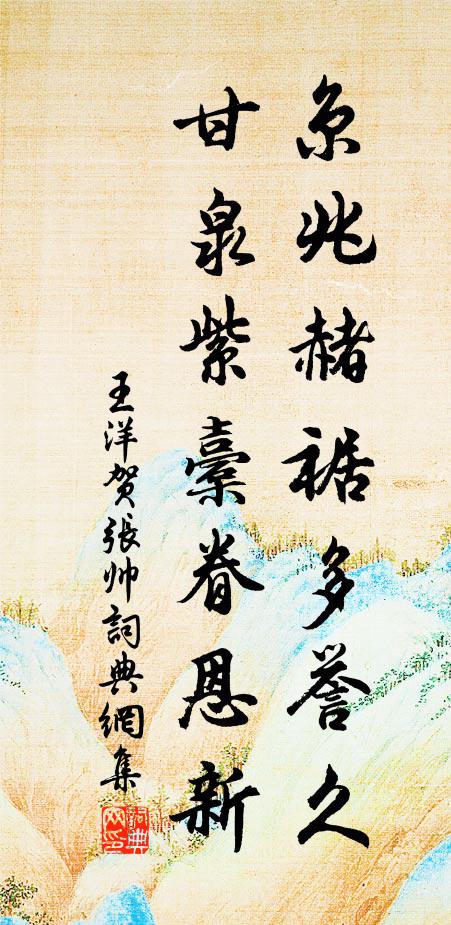 京兆赭裾多誉久
甘泉紫橐眷恩新
王洋贺張帅詞典網集
詞典
网印